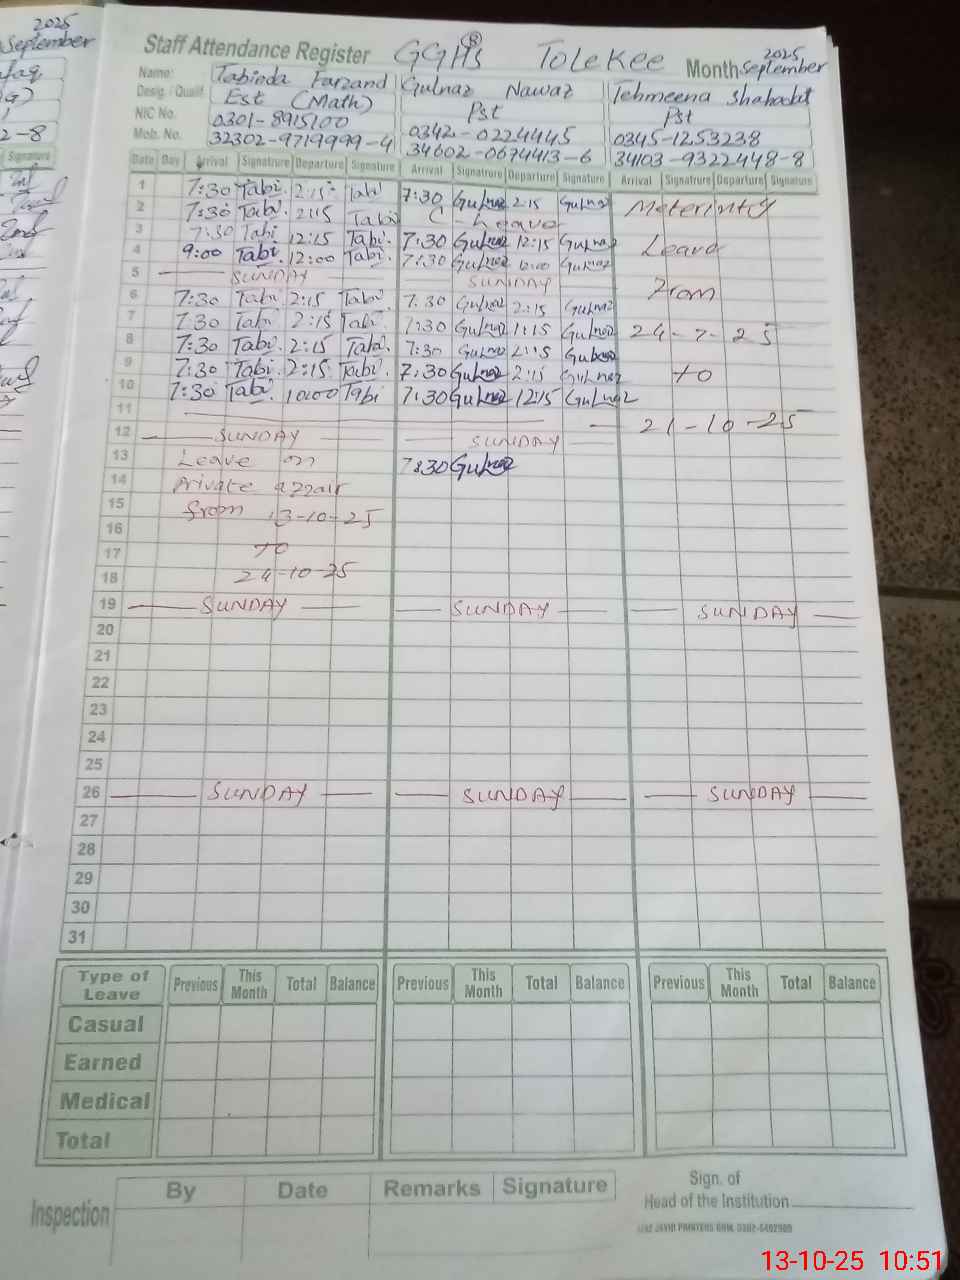 2025
September
2-8
Signature
Staff Attendance Register GGHS Tolekee Month September 2025
Name: Tabinda Farzand Gulnaz Nawaz Tehmeena Shahadat
Desig. / Qualif. Est (Math) Pst Pst
NIC No. 0301-8915100 0342-0224445 0345-1253238
Mob. No. 32302-9719999-4 34602-0674413-6 34103-9322448-8
Date Day Arrival Signatrure Departure Signature Arrival Signatrure Departure Signature Arrival Signatrure Departure Signature
1 7:30 Tabi. 2:15 Tabi 7:30 Gulnaz 2:15 Gulnaz Meterinty
2 7:30 Tabi. 2:15 Tabi C Leave
3 7:30 Tabi 12:15 Tabi. 7:30 Gulnaz 12:15 Gulnaz Leave
4 9:00 Tabi. 12:00 Tabi. 7:30 Gulnaz Gulnaz
5 SUNDAY SUNDAY From
6 7:30 Tabi 2:15 Tabi 7:30 Gulnaz 2:15 Gulnaz
7 7:30 Tabi 2:15 Tabi 7:30 Gulnaz 1:15 Gulnaz 24-7-25
8 7:30 Tabi. 2:15 Tabi. 7:30 Gulnaz Gulnaz
9 7:30 Tabi. 2:15 Tabi. 7:30 Gulnaz 2:15 Gulnaz to
10 7:30 Tabi. 10:00 Tabi 7:30 Gulnaz 12:15 Gulnaz
11 21-10-25
12 SUNDAY SUNDAY
13 Leave on 7:30 Gulnaz
14 Private affair
15 from 13-10-25
16
17 to
18 24-10-25
19 SUNDAY SUNDAY SUNDAY
20
21
22
23
24
25
26 SUNDAY SUNDAY SUNDAY
27
28
29
30
31
Type of Leave Previous This Month Total Balance Previous This Month Total Balance Previous This Month Total Balance
Casual
Earned
Medical
Total
Inspection By Date Remarks Signature
Sign. of
Head of the Institution
13-10-25 10:51